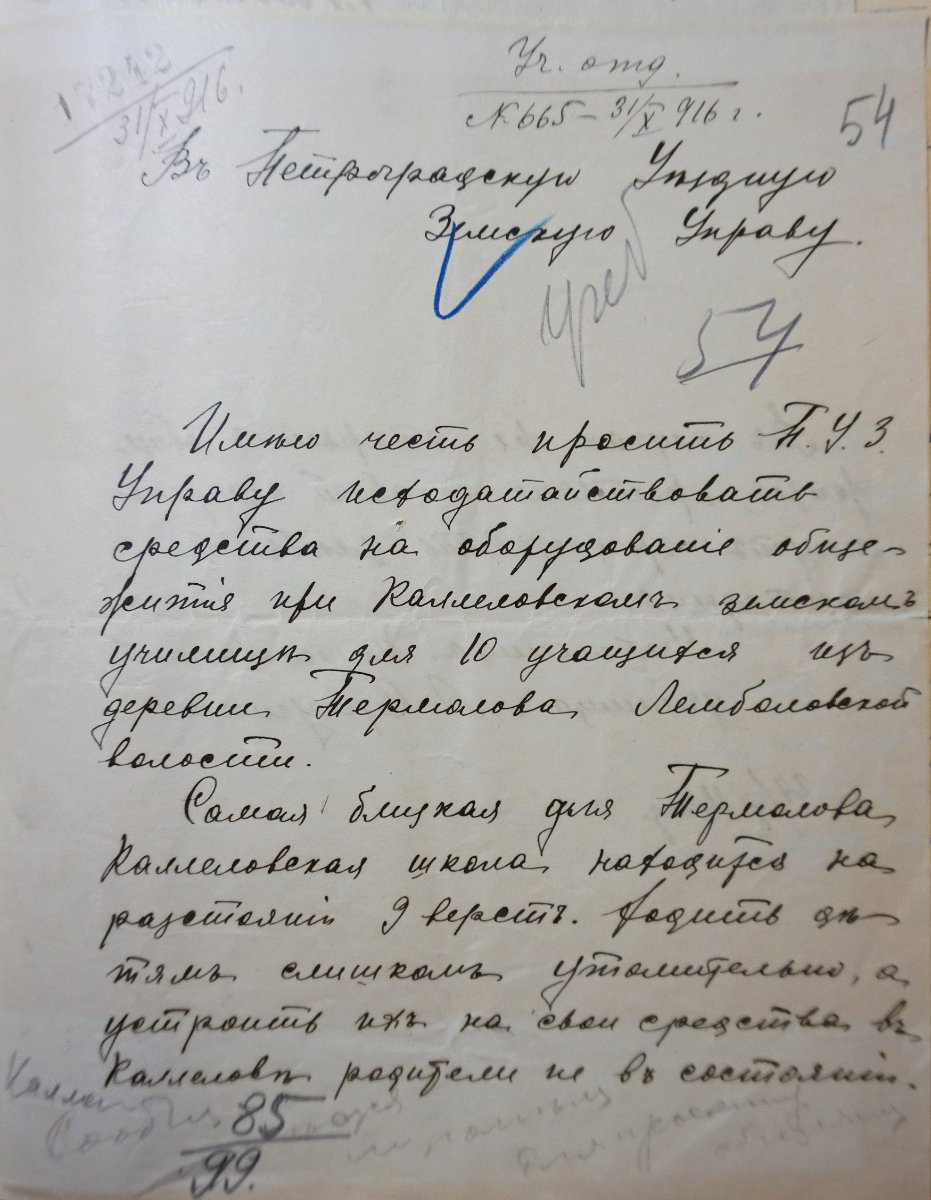 17242
31/X 916.
Уч. отд.
№ 665 – 31/X 916 г.
54
Въ Петроградскую Уѣздную
Земскую Управу.
Учеб
54
Имѣю честь просить П. У. З.
Управу исходатайствовать
средства на оборудованіе обще-
житія при Каллеловскомъ земскомъ
училищѣ для 10 учащихся изъ
деревни Термолова Лемболовской
волости.
Самая близкая для Термолова
Каллеловская школа находится на
разстояніи 9 верстъ. Ходить дѣ
тямъ слишкомъ утомительно, а
устроить ихъ на свои средства въ
Каллеловѣ родители не въ состояніи.
85
99.